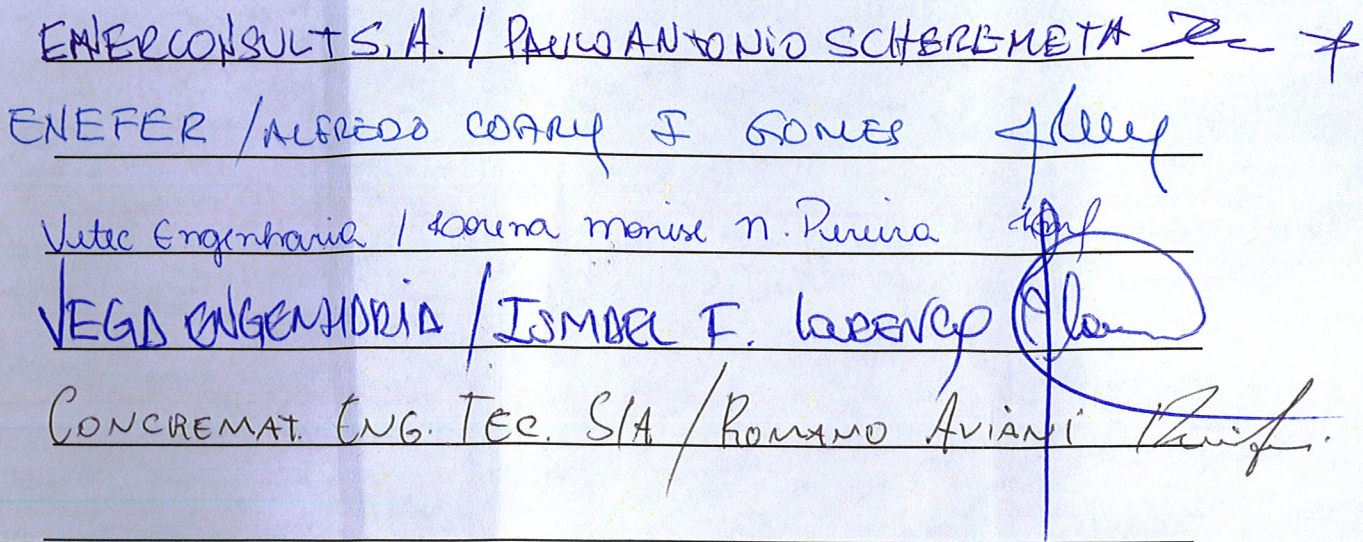 ENERCONSULT S.A. / PAULO ANTONIO SCHEREMETA
ENEFER / ALFREDO COARY F GOMES
Vetec Engenharia / Lorena monise n. Pereira
VEGA ENGENHARIA / ISMAEL F. LORENÇO
CONCREMAT. ENG. TEC. S/A / ROMANO AVIANI